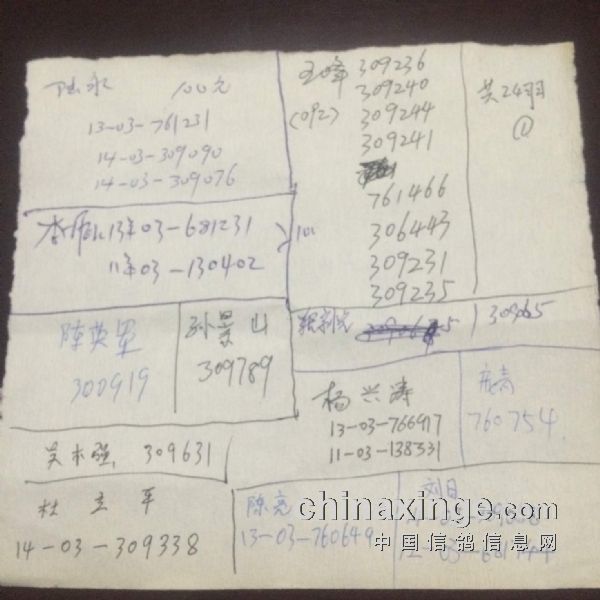 陆永 100元
13-03-761231
14-03-309090
14-03-309076
13年03-681231
11年03-130402
100
王峰 309236
309240
(092) 309244
309241
761466
306443
309231
309235
共24羽
①
陈英军
300919
孙景山
309789
309065
杨兴涛
13-03-766917
11-03-138331
760754
吴木强 309631
杜立平
14-03-309338
陈亮
13-03-760649
刘日
chinaxinge.com
中国信鸽信息网